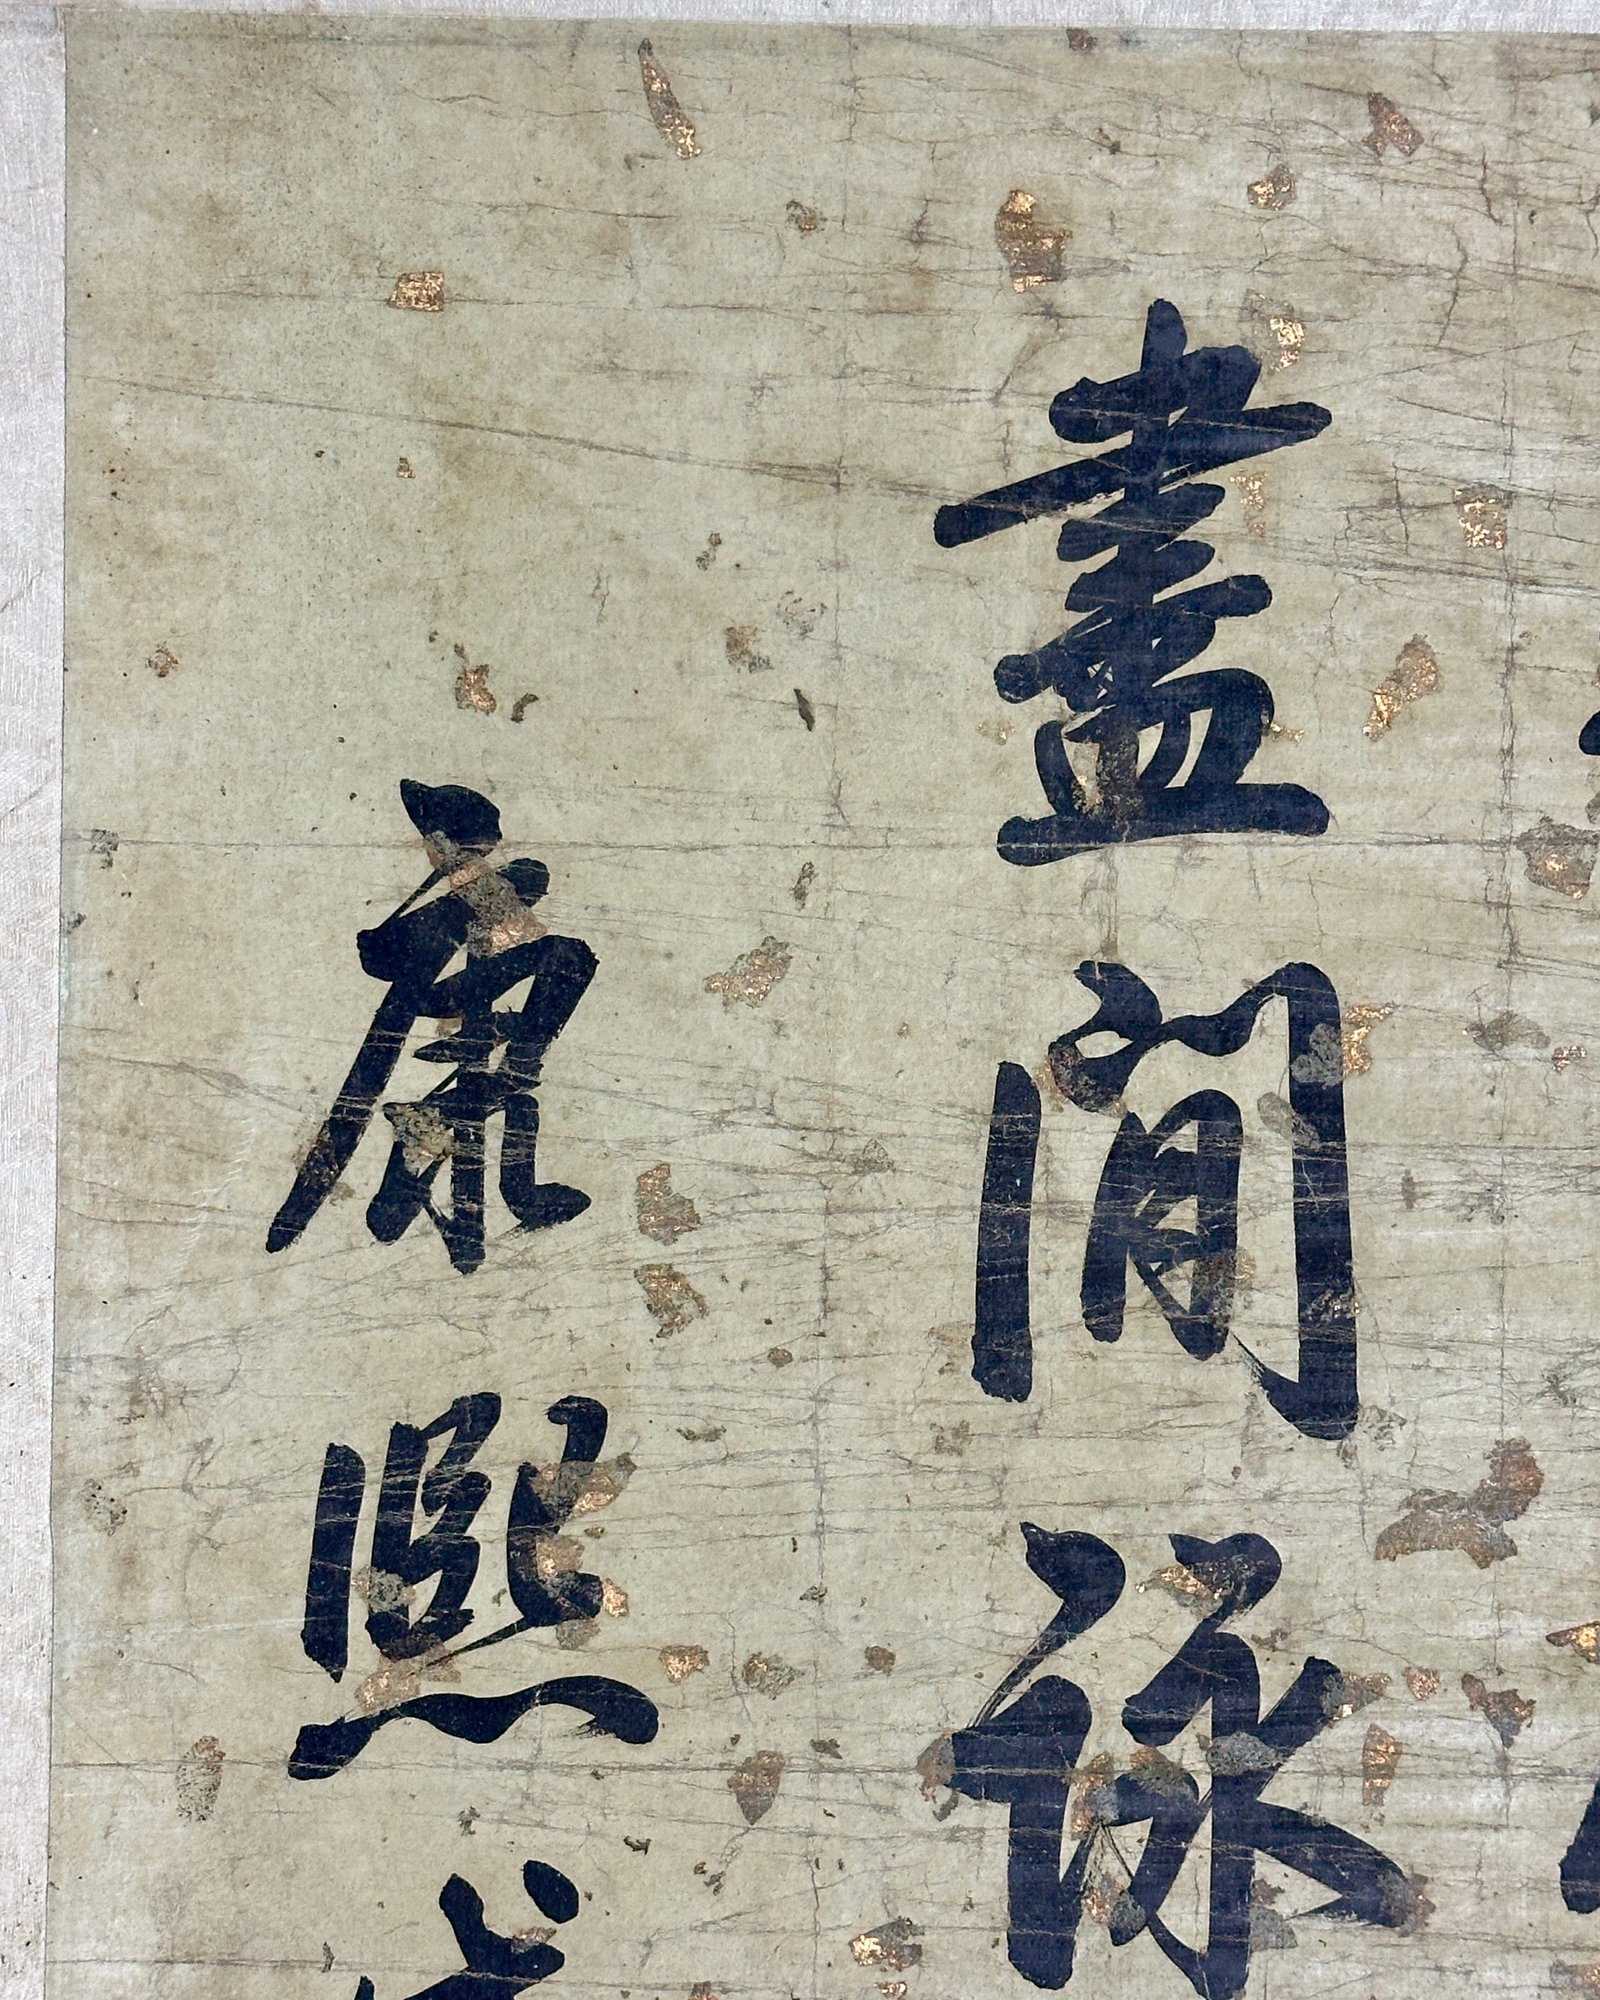 盡閒詠
康熙